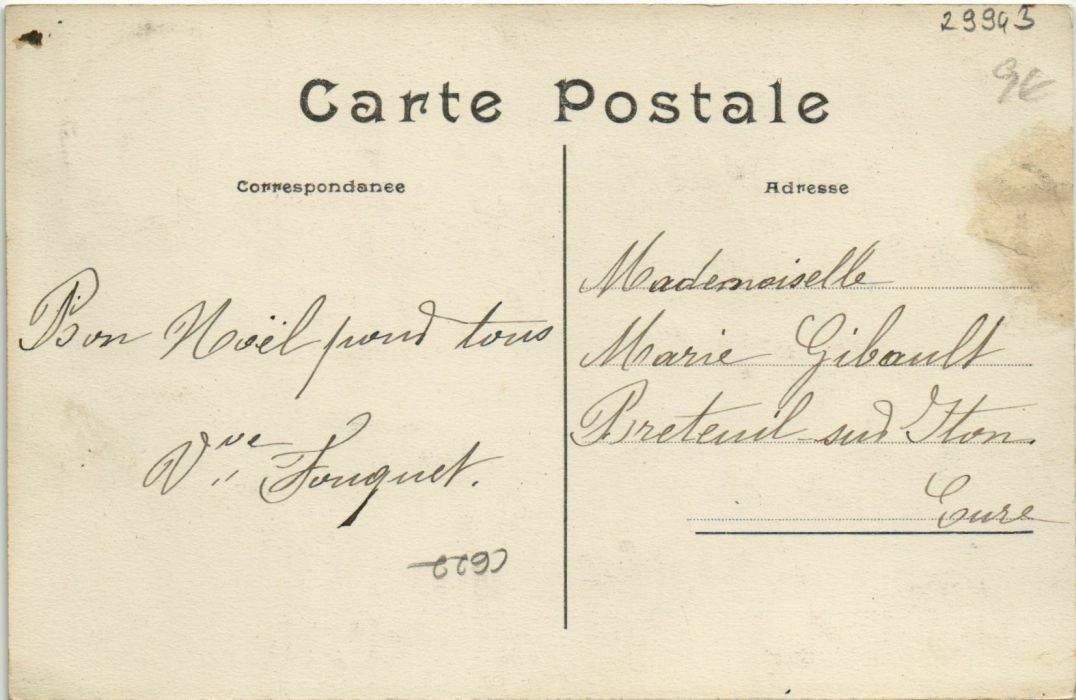 29943
9€
Carte Postale
Correspondance
Adresse
Bon Noël pour tous
Vve Fouquet.
Mademoiselle
Marie Gibault
Breteuil sur Iton.
Eure